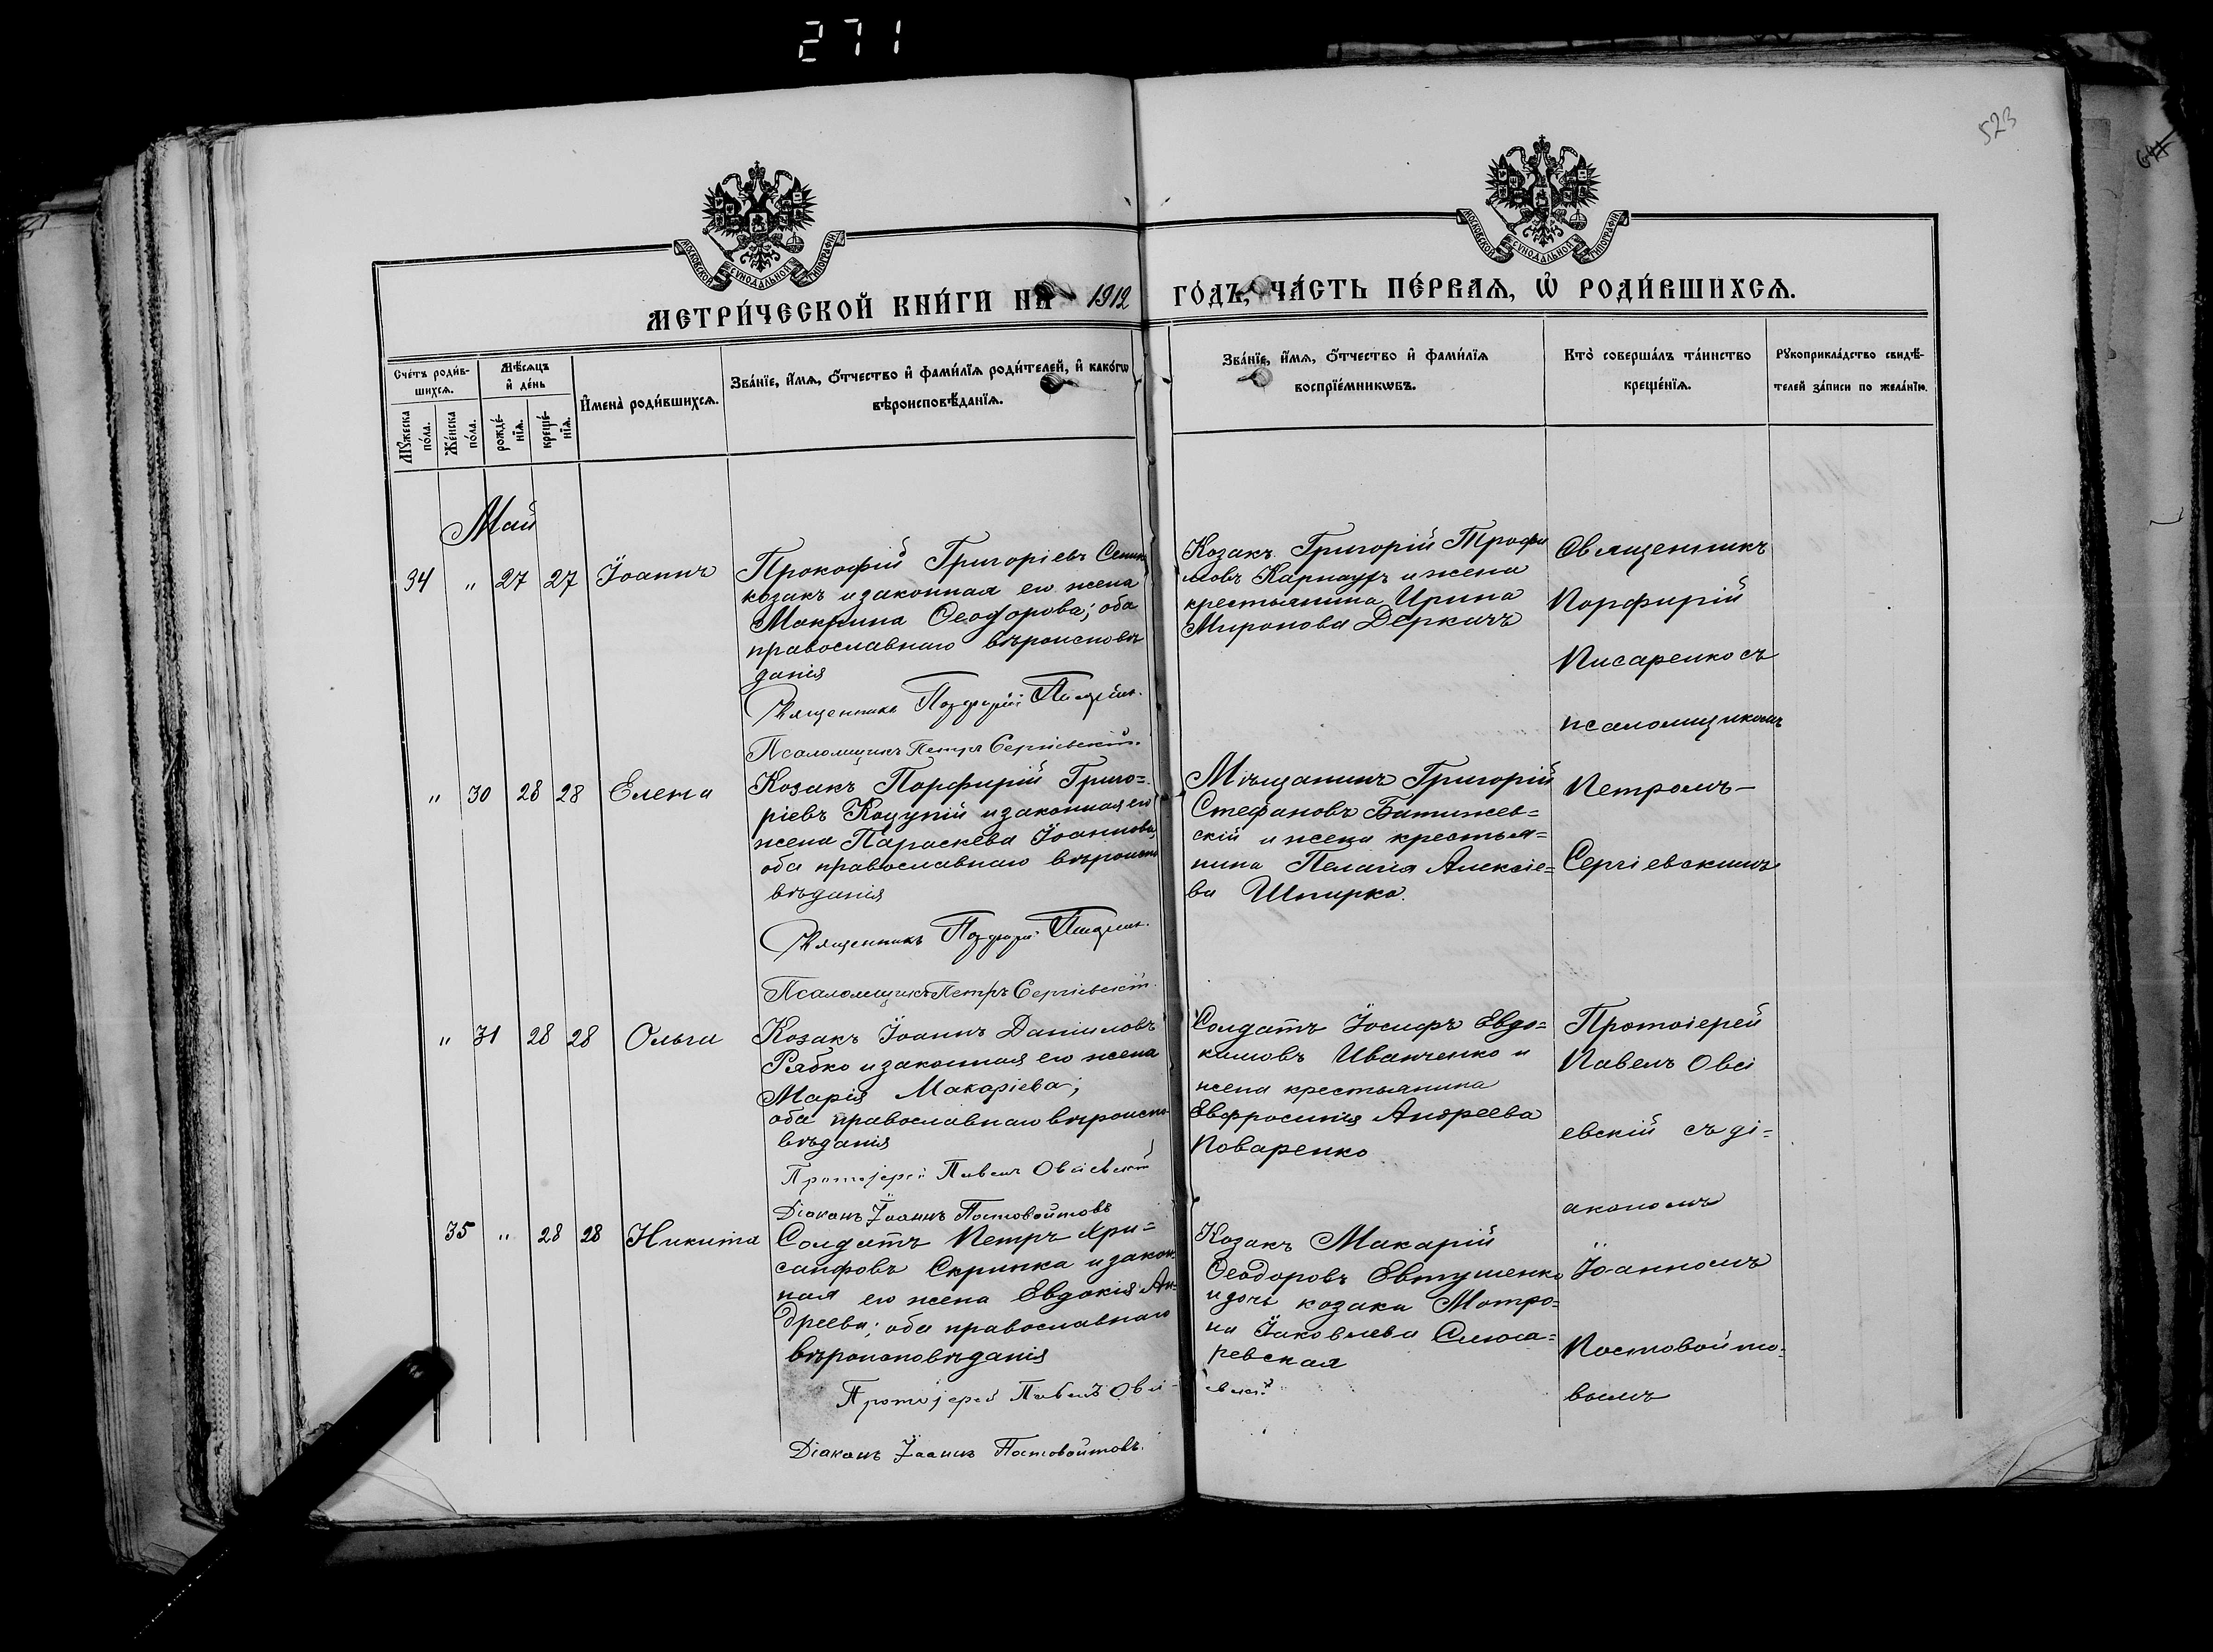 271
523
МОСКОВСКОЙ СѴНОДАЛЬНОЙ ТИПОГРАФІИ
МОСКОВСКОЙ СѴНОДАЛЬНОЙ ТИПОГРАФІИ
МЕТРИ́ЧЕСКОЙ КНИ́ГИ НА 1912 ГО́ДЪ, ЧА́СТЬ ПЕ́РВАѦ, Ѽ РОДИ́ВШИХСѦ.
Сче́тъ роди́в-
шихсѧ.
Мѹ́жеска
по́ла.
Же́нска
по́ла.
Мѣ́сѧцъ
и҆ де́нь
рожде́-
нїѧ.
креще́-
нїѧ.
И҆мена̀ роди́вшихсѧ.
Зва́нїе, и҆́мѧ, ѻ҆́тчество и҆ фами́лїѧ роди́телей, и҆ како́гѡ
вѣроисповѣ́данїѧ.
Зва́нїе, и҆́мѧ, ѻ҆́тчество и҆ фами́лїѧ
воспрїе́мникѡвъ.
Кто̀ соверша́лъ та́инство
креще́нїѧ.
Рѹкоприкла́дство свидѣ́-
телей за́писи по жела́нїю.
Май
34 " 27 27 Іоаннъ
Прокофій Григоріевъ
козакъ и законная его жена
Макрина Ѳеодорова; оба
православнаго вѣроисповѣ
данія
Священникъ Порфирій Писаренко.
Псаломщикъ Петръ Сергіевскій.
Козакъ Григорій Трофи
мовъ Карнаухъ и жена
крестьянина Ирина
Миронова Деркачъ
Священникъ
Порфирій
Писаренко съ
псаломщикомъ
Петромъ-
Сергіевскимъ
" 30 28 28 Елена
Козакъ Порфирій Григо=
ріевъ Коцупій и законная его
жена Параскева Іоаннова,
оба православнаго вѣроиспо
вѣданія
Священникъ Порфирій Писаренко.
Псаломщикъ Петръ Сергіевскій.
Мѣщанинъ Григорій
Стефановъ Батижев=
скій и жена крестья=
нина Пелагія Алексіе=
ва Шпирко.
" 31 28 28 Ольга
Козакъ Іоаннъ Даніиловъ
Рябко и законная его жена
Марія Макаріева;
оба православнаго вѣроиспо
вѣданія
Протоіерей Павелъ Овсіевскій
Діаконъ Іоаннъ Постовойтовъ
Солдатъ Іосифъ Евдо=
кимовъ Иванченко и
жена крестьянина
Евфросинія Андреева
Поваренко
Протоіерей
Павелъ Овсі
евскій съ ді=
акономъ
Іоанномъ
Постовойто-
вымъ
35 " 28 28 Никита
Солдатъ Петръ Хри=
санфовъ Скрипка и закон
ная его жена Евдокія Ан-
дреева; оба православнаго
вѣроисповѣданія
Протоіерей Павелъ Овсі-
евскій
Діаконъ Іоаннъ Постовойтовъ.
Козакъ Макарій
Ѳеодоровъ Евтушенко
и дочь козака Мотро=
на Іаковлева Слюса=
ревская